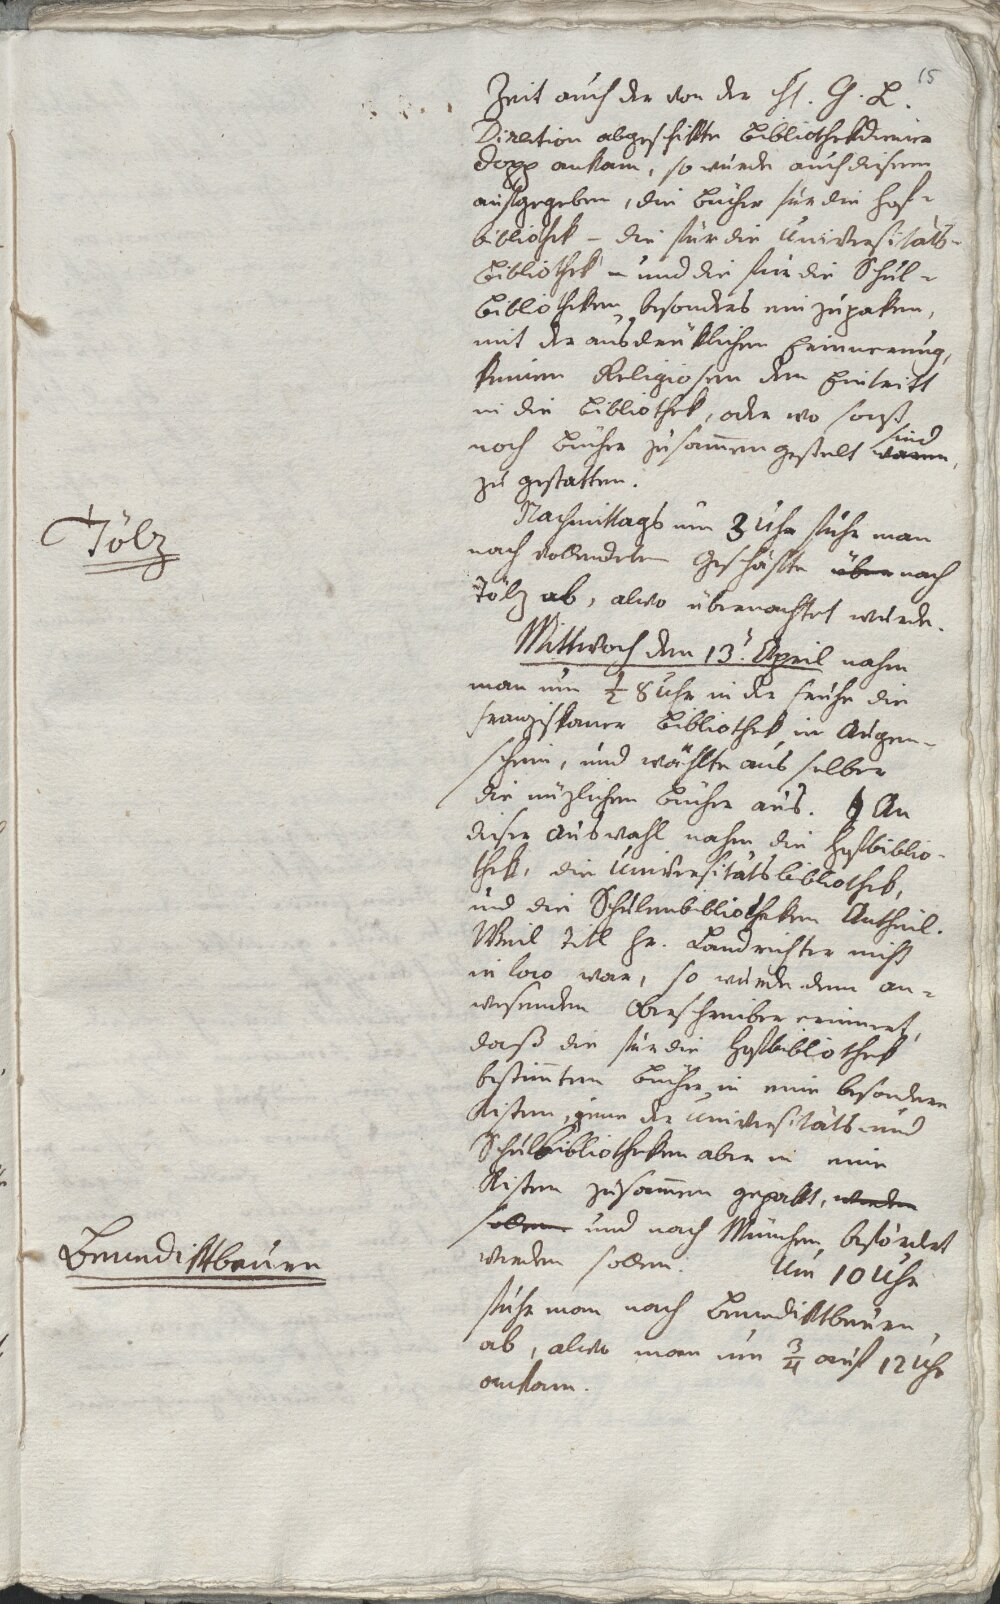 15
Zeit auch der von der H. G. L.
Direction abgeschikte Bibliothekdiener
Dopp ankam, so wurde auch diesem
aufgegeben, die Bücher für die Hof-
bibliothek – die für die Universitäts-
Bibliothek – und die für die Schul-
Bibliotheken besonders einzupaken,
mit der ausdrüklichen Erinnerung,
keinem Religiosen den Eintritt
in die Bibliothek, oder wo sonst
noch Bücher zusammengestelt sind waren,
zu gestatten.
Tölz
Nachmittags um 3 Uhr fuhr man
nach vollendetem Geschäfte über nach
Tölz ab, alwo übernachtet wurde.
Mittwoch den 13t. April nahm
man um ½ 8 Uhr in der Frühe die
Franziskaner Bibliothek in Augen-
schein, und wählte aus selber
die nüzlichen Bücher aus. An
dieser Auswahl nahm die Hofbiblio-
thek, die Universitätsbibliothek,
und die Schulenbibliotheken Antheil.
Weil Titl Hr. Landrichter nicht
in loco war, so wurde dem an-
wesenden Oberschreiber erinnert,
daß die für die Hofbibliothek
bestimmten Bücher in eine besondere
Kisten, jene der Universitäts- und
Schulbibliotheken aber in eine
Kisten zusammen gepakt, werden
sollen und nach München befördert
werden sollen. Um 10 Uhr
Benediktbeuern
fuhr man nach Benediktbeuern
ab, alwo man um ¾ auf 12 Uhr
ankam.